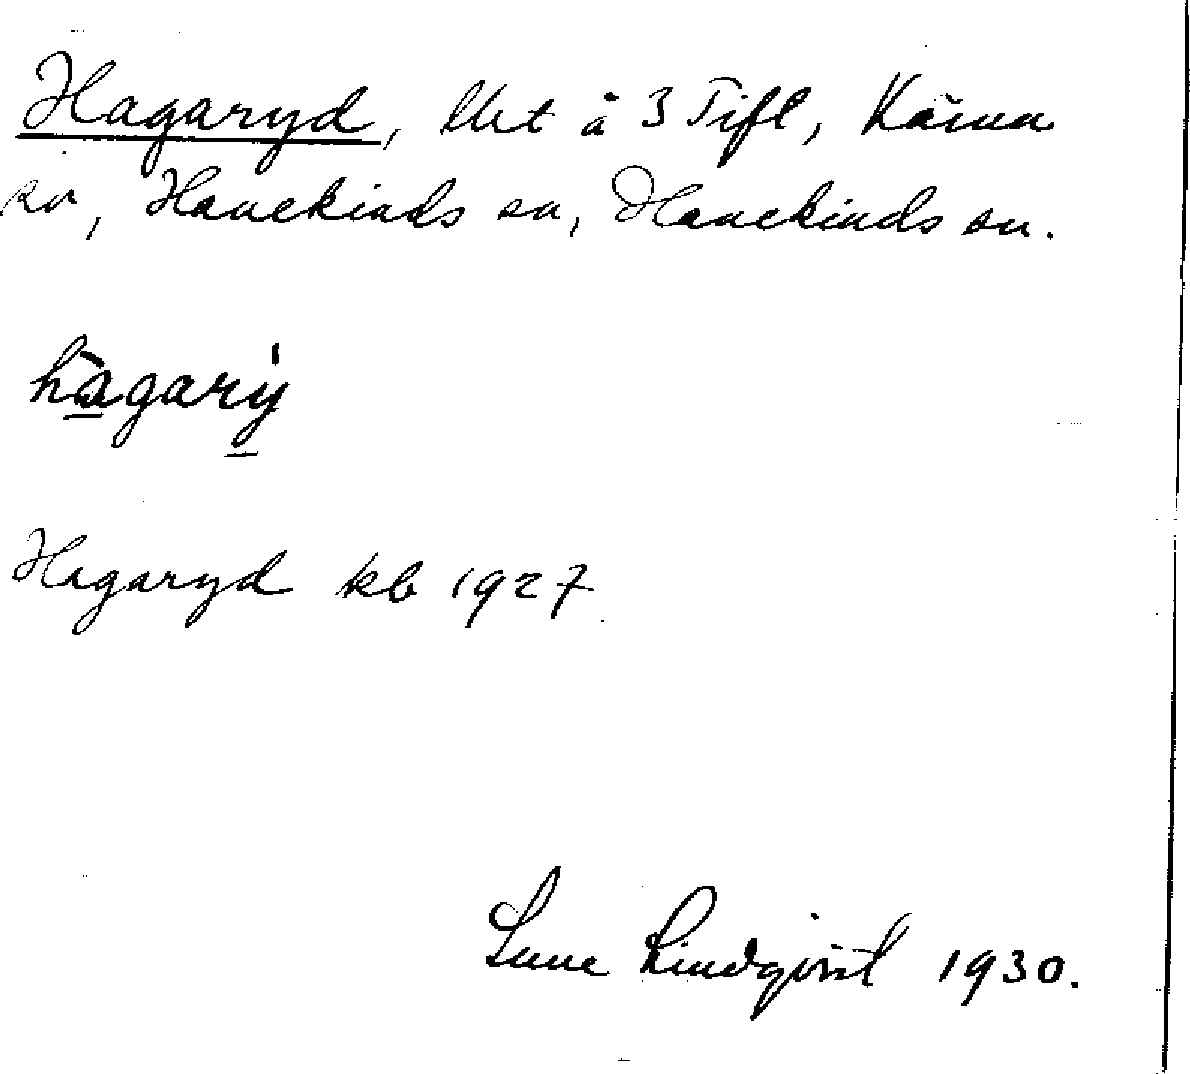 Hagaryd, lht å 3 Tifl, Kärna
sn, Hanekinds sn, Hanekinds sn.
hàgarý
Hagaryd kb 1927
Sune Lindqvist 1930.